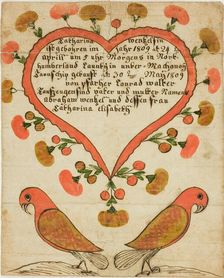 Catharina wentzelsin
ist gebohren im jahr 1809 d 24
aprill um 7 uhr Morgens in North
humberland Caunty in unter Machanoy
Taunschip getauft d 30 May 1809
von pfarher Conrad walter
Taufzeugen sind vater und mutter Namens
abraham wentzel und dessen frau
Catharina elisabeth